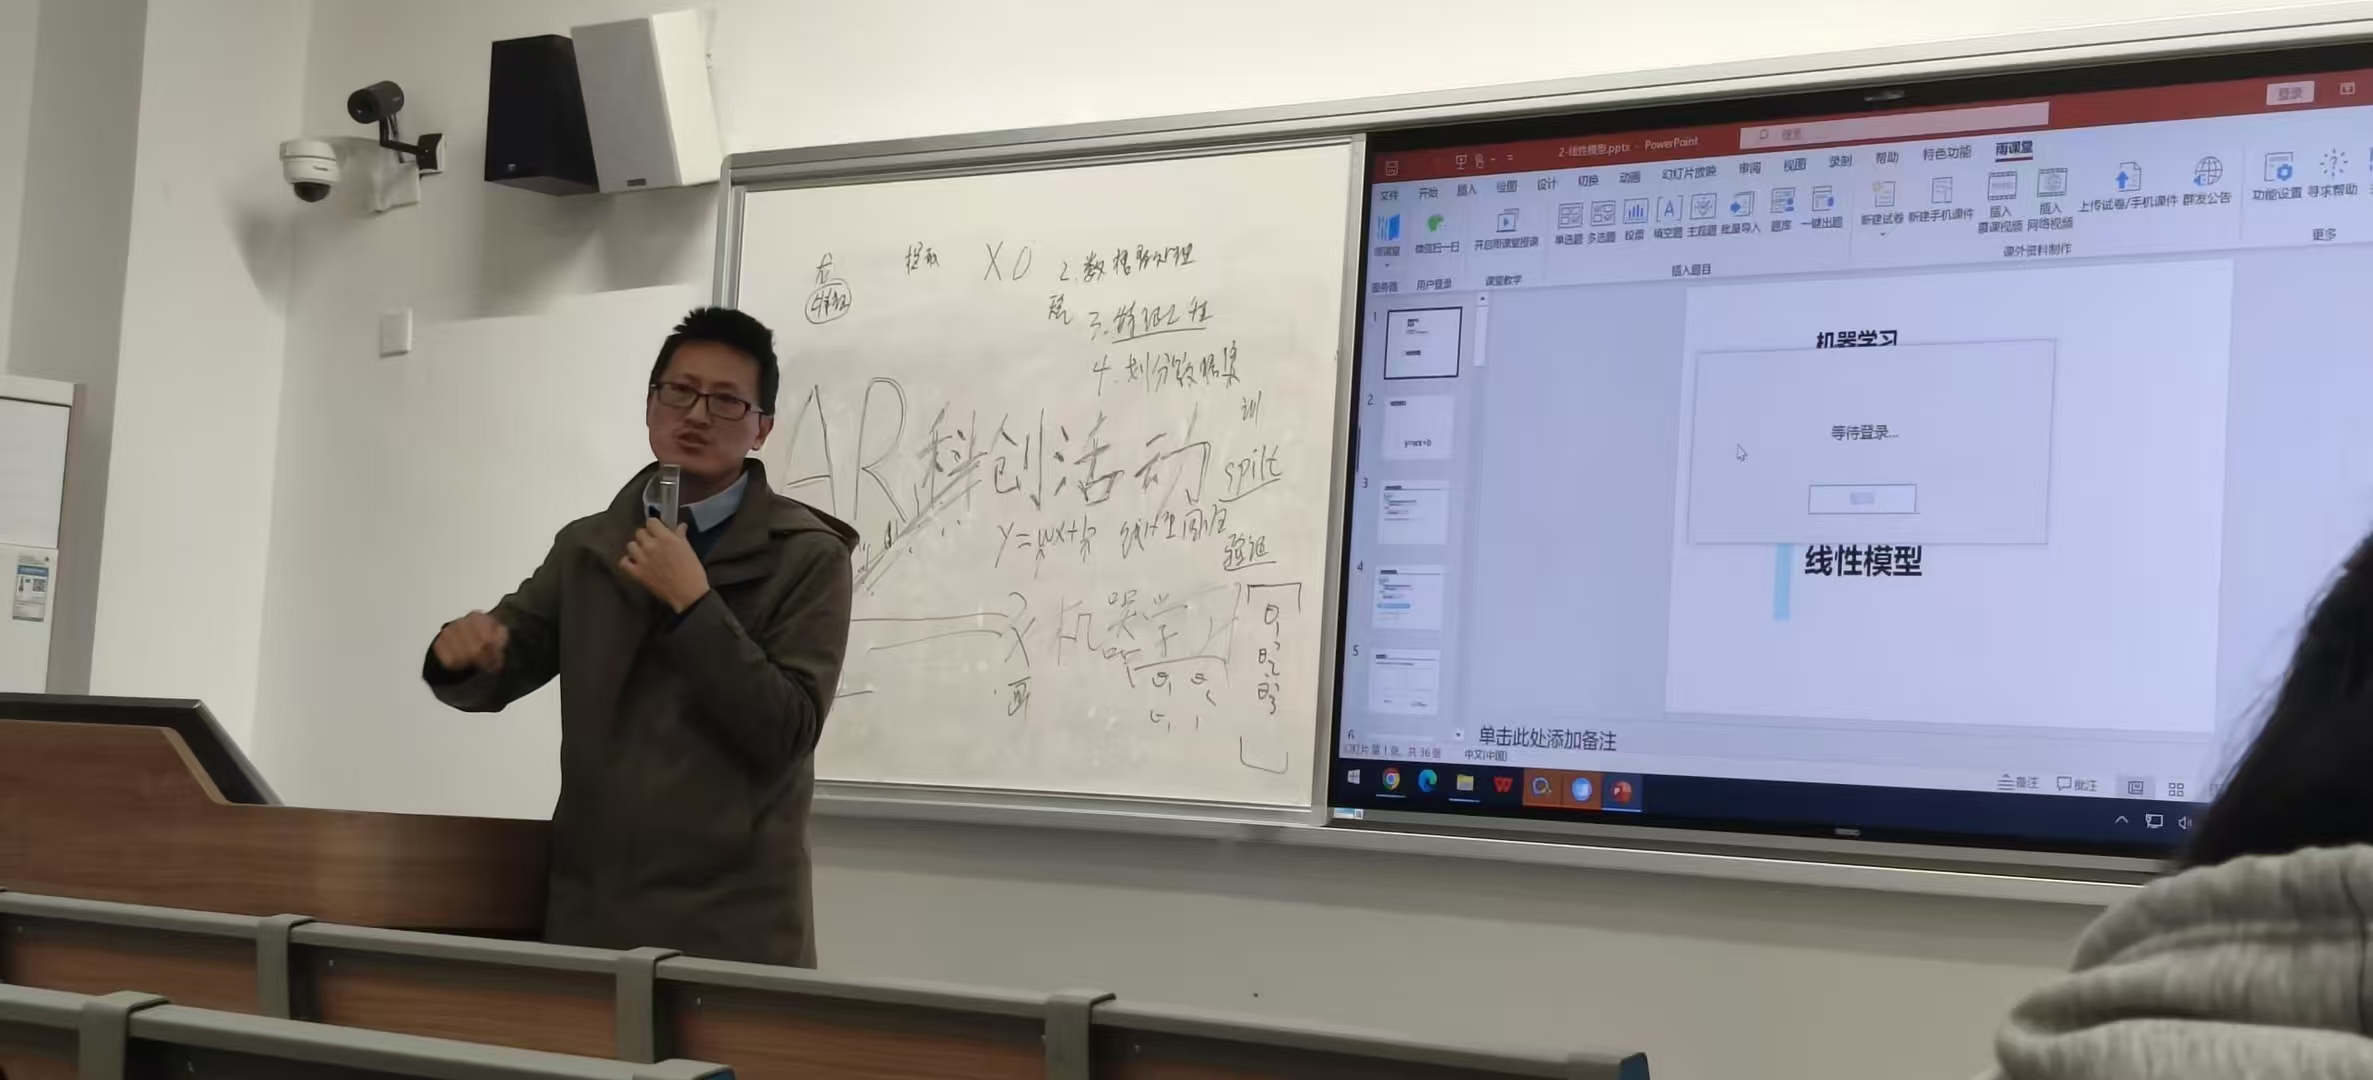 提取
XO
2.数据预处理
特征
3.特征工程
4.划分数据集
训
AR科创活动
spilt
y=wx+b 线性回归
验证
机器学习
画
θ1
θ2
θ3
2-线性模型.pptx - PowerPoint
搜索
登录
文件 开始 插入 绘图 设计 切换 动画 幻灯片放映 审阅 视图 录制 帮助 特色功能 雨课堂
雨课堂 微信扫一扫 开启雨课堂授课 单选题 多选题 投票 填空题 主观题 批量导入 题库 一键出题 新建试卷 新建手机课件 插入慕课视频 插入网络视频 上传试卷/手机课件 群发公告 功能设置 寻求帮助
服务器 用户登录 课堂教学 插入题目 课外资料制作 更多
1
2
y=wx+b
3
4
5
6
机器学习
等待登录...
线性模型
单击此处添加备注
幻灯片 第 1 张，共 36 张 中文(中国)
备注 批注